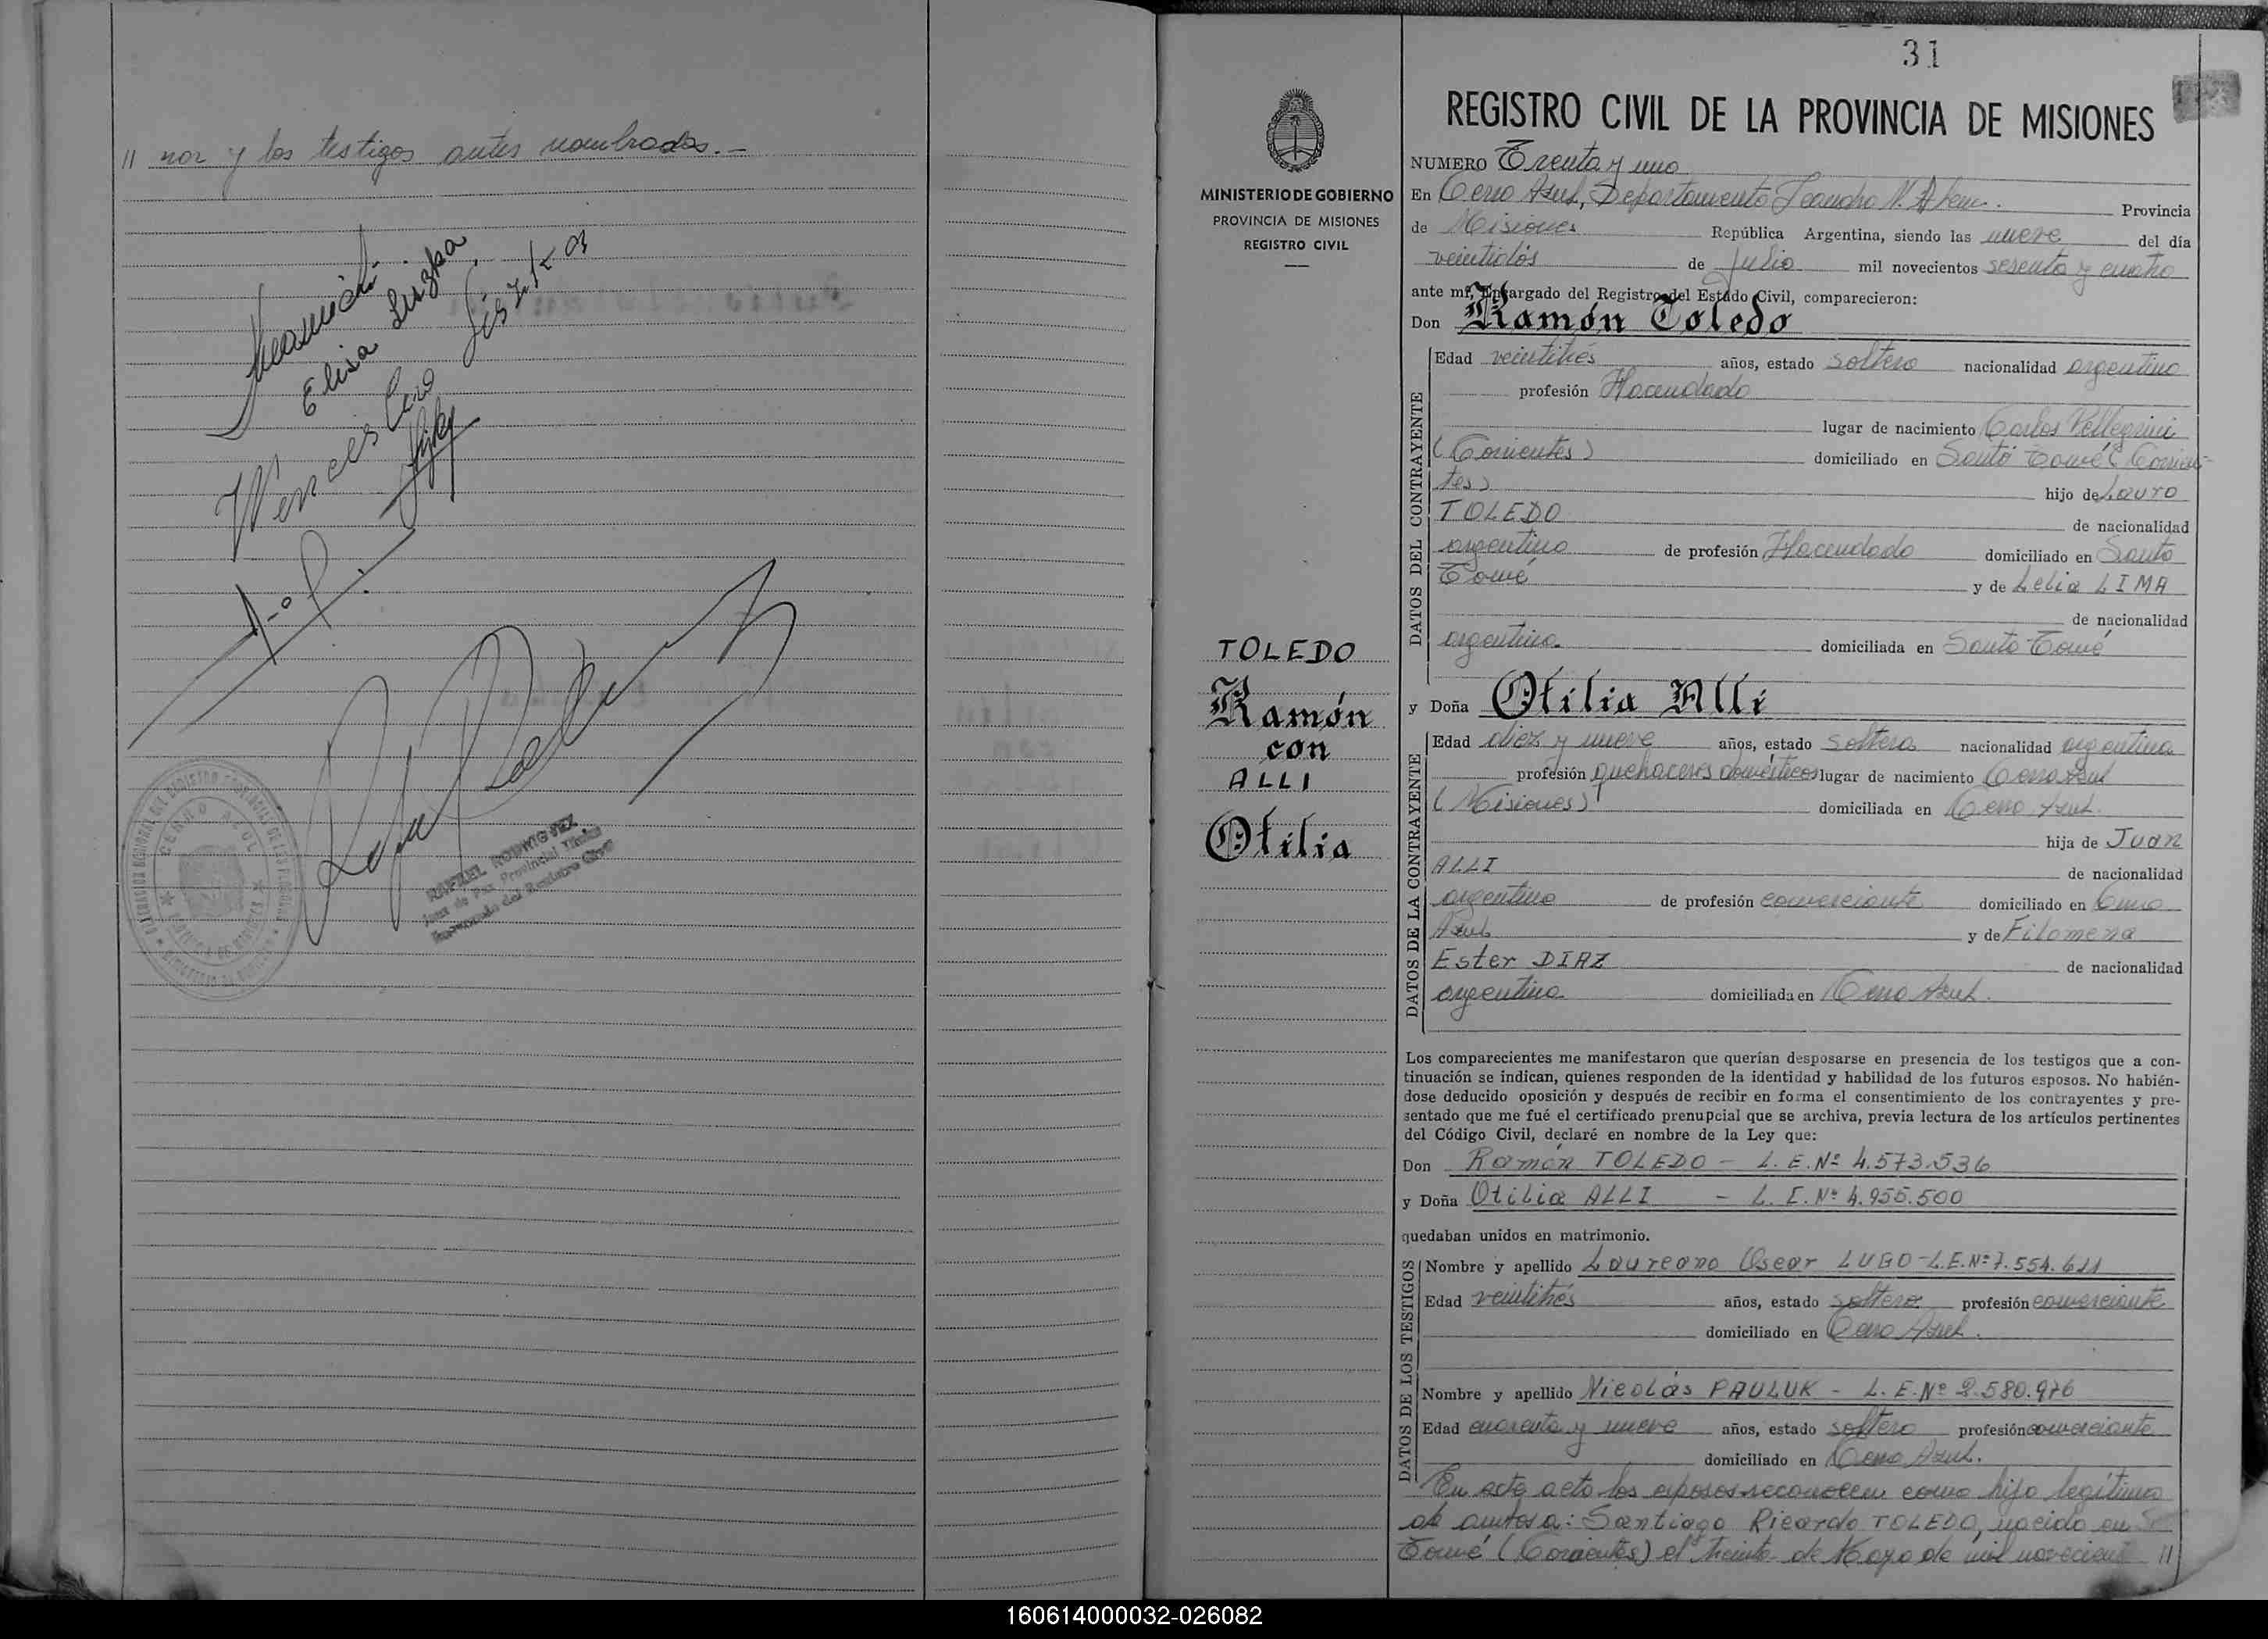 // nor y los testigos antes nombrados.-
Elisa Liszka
Wenceslao
RAFAEL RODRIGUEZ
Juez de Paz Provincial Titular
Encargado del Registro Civil
CERRO AZUL
31
MINISTERIO DE GOBIERNO
PROVINCIA DE MISIONES
REGISTRO CIVIL
TOLEDO
Ramón
con
ALLI
Otilia
REGISTRO CIVIL DE LA PROVINCIA DE MISIONES
NUMERO Treinta y uno
En Cerro Azul, Departamento Leandro N. Alem. Provincia
de Misiones República Argentina, siendo las nueve del día
veintidós de Julio mil novecientos sesenta y cuatro
ante mí, Encargado del Registro del Estado Civil, comparecieron:
Don Ramón Toledo
DATOS DEL CONTRAYENTE
Edad veintitrés años, estado soltero nacionalidad argentino
profesión Hacendado
lugar de nacimiento Carlos Pellegrini
(Corrientes) domiciliado en Santo Tomé (Corrien-
tes) hijo de Lauro
TOLEDO de nacionalidad
argentino de profesión Hacendado domiciliado en Santo
Tomé y de Lelia LIMA
de nacionalidad
argentina. domiciliada en Santo Tomé
y Doña Otilia Alli
DATOS DE LA CONTRAYENTE
Edad diez y nueve años, estado soltera nacionalidad argentina
profesión quehaceres domésticos lugar de nacimiento Cerro Azul
(Misiones) domiciliada en Cerro Azul.
hija de Juan
ALLI de nacionalidad
argentino de profesión comerciante domiciliado en Cerro
Azul y de Filomena
Ester DIAZ de nacionalidad
argentina domiciliada en Cerro Azul.
Los comparecientes me manifestaron que querían desposarse en presencia de los testigos que a con-
tinuación se indican, quienes responden de la identidad y habilidad de los futuros esposos. No habién-
dose deducido oposición y después de recibir en forma el consentimiento de los contrayentes y pre-
sentado que me fué el certificado prenupcial que se archiva, previa lectura de los artículos pertinentes
del Código Civil, declaré en nombre de la Ley que:
Don Ramón TOLEDO - L. E. Nº 4.573.536
y Doña Otilia ALLI - L. E. Nº 4.955.500
quedaban unidos en matrimonio.
DATOS DE LOS TESTIGOS
Nombre y apellido Laureano Oscar LUGO - L.E. Nº 7.554.611
Edad veintitrés años, estado soltero profesión comerciante
domiciliado en Cerro Azul.
Nombre y apellido Nicolás PAULUK - L. E. Nº 2.580.976
Edad cuarenta y nueve años, estado soltero profesión comerciante
domiciliado en Cerro Azul.
En este acto los esposos reconocen como hijo legítimo
de ambos a: Santiago Ricardo TOLEDO, nacido en
Tomé (Corrientes) el treinta de Mayo de mil novecien //
160614000032-026082